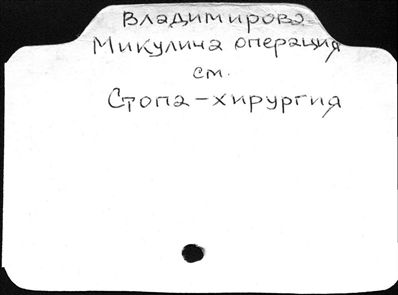 Владимирова-
Микулича операция
см.
Стопа-хирургия